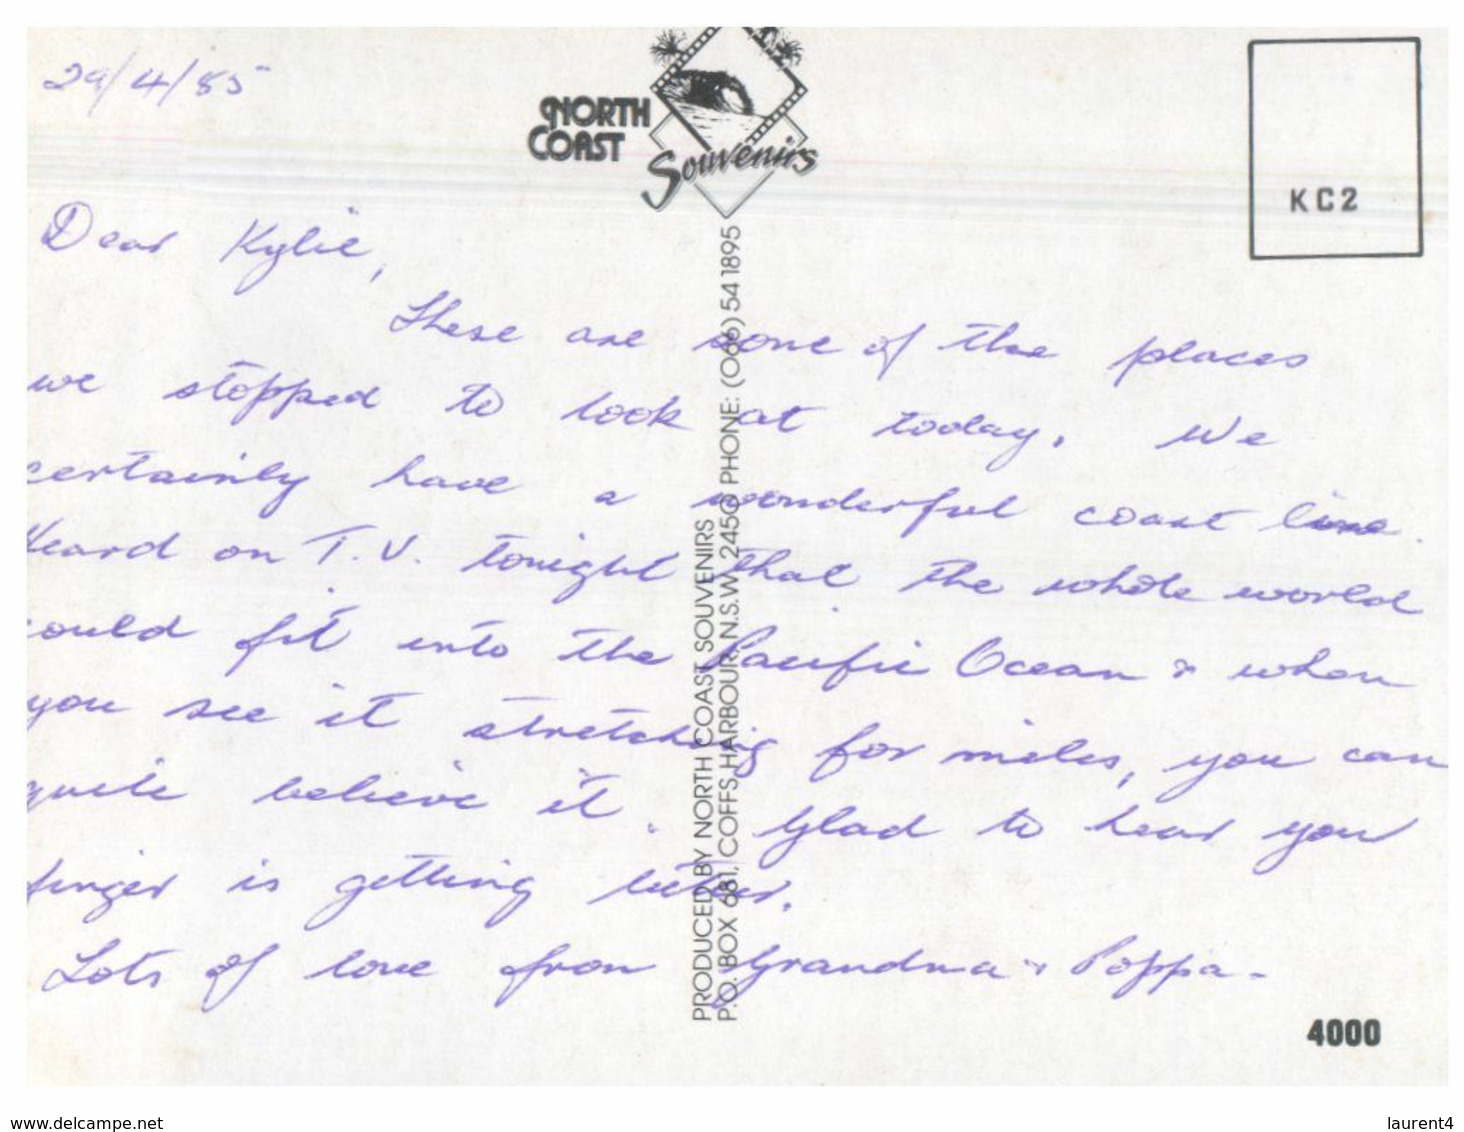 29/4/85
NORTH
COAST
Souvenirs
KC2
Dear Kylie,
These are some of the places
we stopped to look at today. We
certainly have a wonderful coast line.
Heard on T.V. tonight that the whole world
could fit into the Pacific Ocean & when
you see it stretching for miles, you can
quite believe it. Glad to hear you
finger is getting better.
Lots of love from Grandma & Poppa.
PRODUCED BY NORTH COAST SOUVENIRS
P.O. BOX 681, COFFS HARBOUR, N.S.W. 2450 PHONE: (066) 54 1895
4000
www.delcampe.net
laurent4